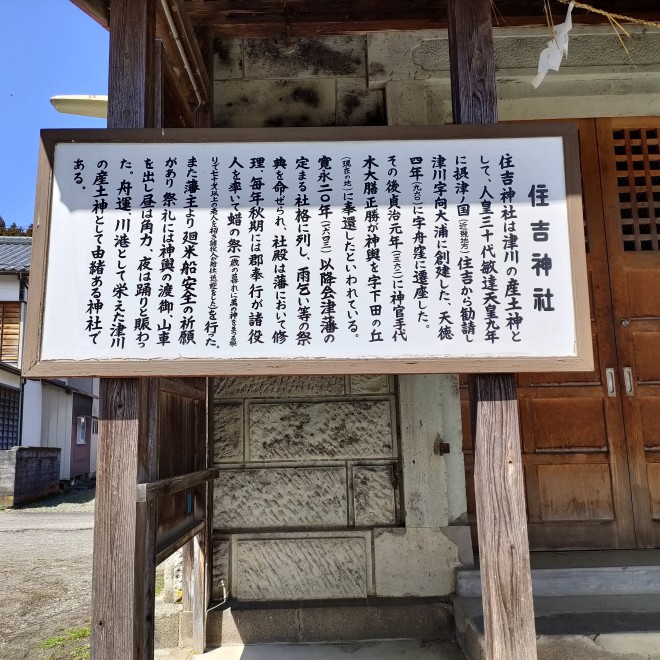 住吉神社
住吉神社は津川の産土神と
して、人皇三十代敏達天皇九年
に摂津ノ国(近畿地方)住吉から勧請し
津川字向大浦に創建した、天徳
四年(九六〇)に字舟窪に遷座した。
その後貞治元年(一三六二)に神官手代
木大膳正勝が神輿を字下田の丘
(現在の地)に奉還したといわれている。
寛永二〇年(一六四三)以降会津藩の
定まる社格に列し、雨乞い等の祭
典を命ぜられ、社殿は藩において修
理、毎年秋期には郡奉行が諸役
人を率いて蜡の祭(歳の暮れに萬の神をまつる祭
りで七十才以上の老人を招き諸役人給仕送迎をした)を行った、
また藩主より廻米船安全の祈願
があり祭礼には神輿の渡御、山車
を出し昼は角力、夜は踊りと賑わっ
た。舟運、川港として栄えた津川
の産土神として由緒ある神社で
ある。